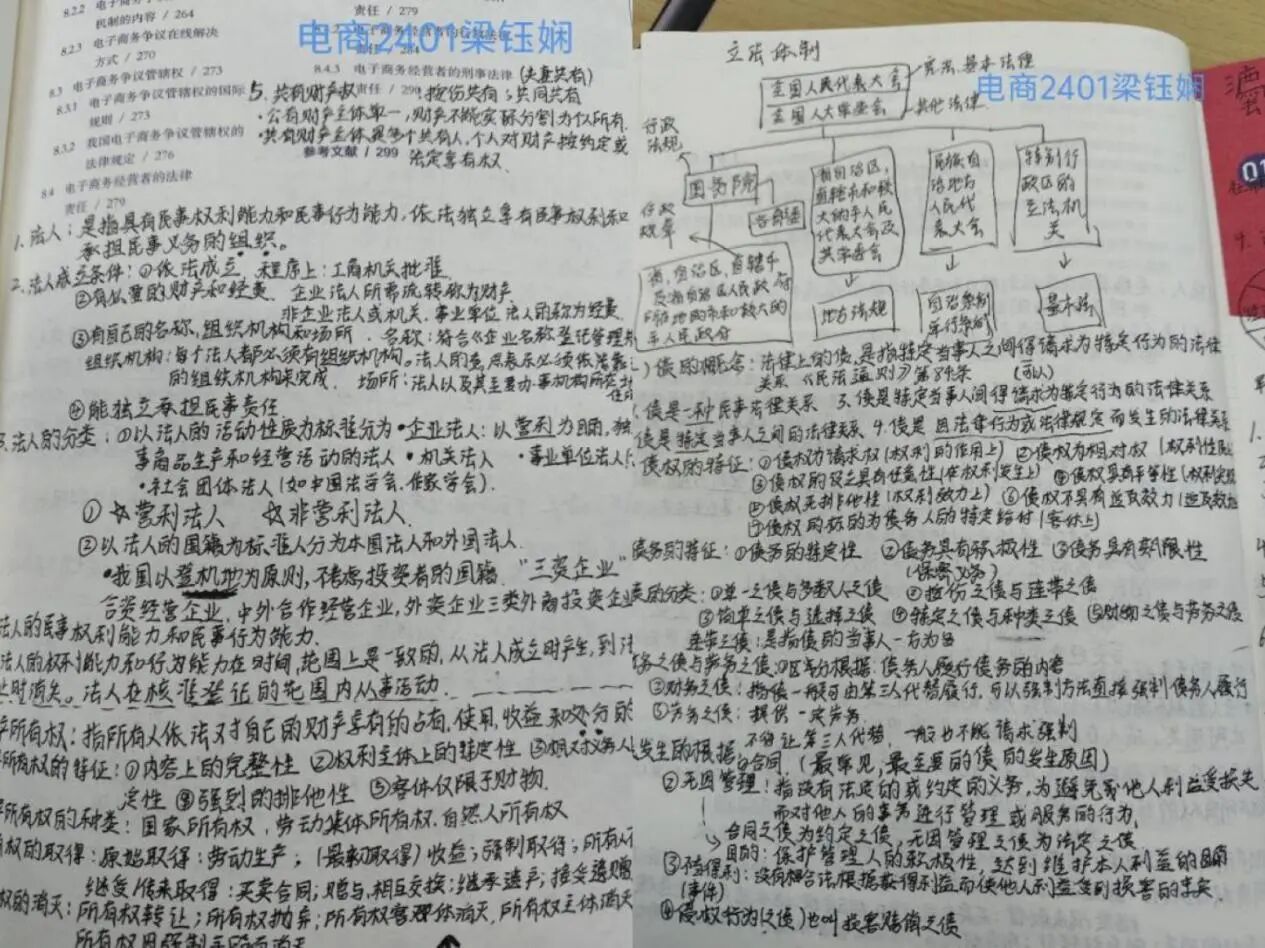 8.2.2 电子商务争
机制的内容 / 264
8.2.3 电子商务争议在线解决
方式 / 270
8.3 电子商务争议管辖权 / 273
8.3.1 电子商务争议管辖权的国际
规则 / 273
8.3.2 我国电子商务争议管辖权的
法律规定 / 276
8.4 电子商务经营者的法律
责任 / 279
责任 / 279
电商2401梁钰娴
8.4.2 电子商务经营者的行政法律
责任 / 284
8.4.3 电子商务经营者的刑事法律
责任 / 290
(夫妻共有)
5. 共有财产权：按份共有；共同共有
•公有财产主体单一，财产不能实际分割为个人所有.
•共有财产主体是多个共有人，个人对财产按约定或
法定享有权.
参考文献 / 299
1. 法人：是指具有民事权利能力和民事行为能力，依法独立享有民事权利和
承担民事义务的组织。
2. 法人成立条件：①依法成立 程序上：工商机关批准.
②有必要的财产和经费. 企业法人所需流转称为财产
非企业法人或机关、事业单位法人的称为经费.
③有自己的名称，组织机构和场所. 名称：符合《企业名称登记管理
组织机构：每个法人都必须有组织机构。法人的意思表示必须依靠
的组织机构来完成. 场所：法人以及其主要办事机构所在地
④能独立承担民事责任
3. 法人的分类：①以法人的活动性质为标准分为•企业法人：以营利为目的，独
事商品生产和经营活动的法人 •机关法人 •事业单位法人
•社会团体法人(如中国法学会、作家学会).
① ☆营利法人 ☆非营利法人.
②以法人的国籍为标准人分为本国法人和外国法人.
•我国以登机地为原则，不考虑投资者的国籍. "三资企业"
合资经营企业，中外合作经营企业，外资企业三类外商投资企业
法人的民事权利能力和民事行为能力.
法人的权利能力和行为能力在时间，范围上是一致的，从法人成立时产生，到
止时消失。法人在核准登记的范围内从事活动.
所有权：指所有人依法对自己的财产享有的占有，使用，收益和处分的
所有权的特征：①内容上的完整性 ②权利主体上的特定性 ③相对义务人
定性 ④强烈的排他性 ⑤客体仅限于财物.
所有权的种类：国家所有权，劳动集体所有权.自然人所有权
权的取得：原始取得：劳动生产；(最初取得)收益；强制取得；所有人
继受/传来取得：买卖合同；赠与，相互交换；继承遗产；接受遗赠
权的消灭：所有权转让；所有权抛弃；所有权客体消灭，所有权主体消灭
立法体制
全国人民代表大会
全国人大常委会
宪法、基本法律
其他法律
电商2401梁钰娴
行政
法规
国务院
各部委
行政
规章
省、自治区，直辖市和较
大的市人民
代表大会及
其常委会
民族自
治地方
人民代
表大会
特别行
政区的
立法机
关
省，自治区，直辖市
及
所在地的市和较大的
市人民政府
地方法规
自治条例
单行条例
基本法
债的概念：法律上的债，是指特定当事人之间得请求为特定行为的法律
关系《民法通则》第84条 (可以)
债是一种民事法律关系 3. 债是特定当事人间得请求为特定行为的法律关系
债是特定当事人之间的法律关系 4. 债是因法律行为或法律规定而发生的法律关系
债权的特征：①债权为请求权(权利的作用上) ②债权为相对权(权利性
③债权的设立具有任意性(在权利发生上) ④债权具有平等性(权利
⑤债权无排他性(权利效力上) ⑥债权不具有追及效力(追及
⑦债权的标的为债务人的特定给付(客体上)
债务的特征：①债务的特定性 ②债务具有积极性 ③债务具有期限性
(保密义务)
债的分类：①单一之债与多数人之债 ②按份之债与连带之债
③简单之债与选择之债 ④特定之债与种类之债 ⑤财物之债与劳务之债
连带之债：是指债的当事人一方为多
务之债与劳务之债：①区分根据：债务人履行债务的内容
②财务之债：指债一般可由第三人代替履行，可以强制方法直接强制债务人履行
③劳务之债：提供一定劳务.
不得让第三人代替，一般也不能请求强制
发生的根据 ①合同.(最常见，最主要的债的发生原因)
②无因管理：指没有法定的或约定的义务，为避免他人利益受损失
而对他人的事务进行管理或服务的行为.
合同之债为约定之债，无因管理之债为法定之债
目的：保护管理人的积极性，达到维护本人利益的目的
③不当得利：没有合法根据获得利益而使他人利益受到损害的事实
(事件)
④侵权行为(之债)也叫损害赔偿之债